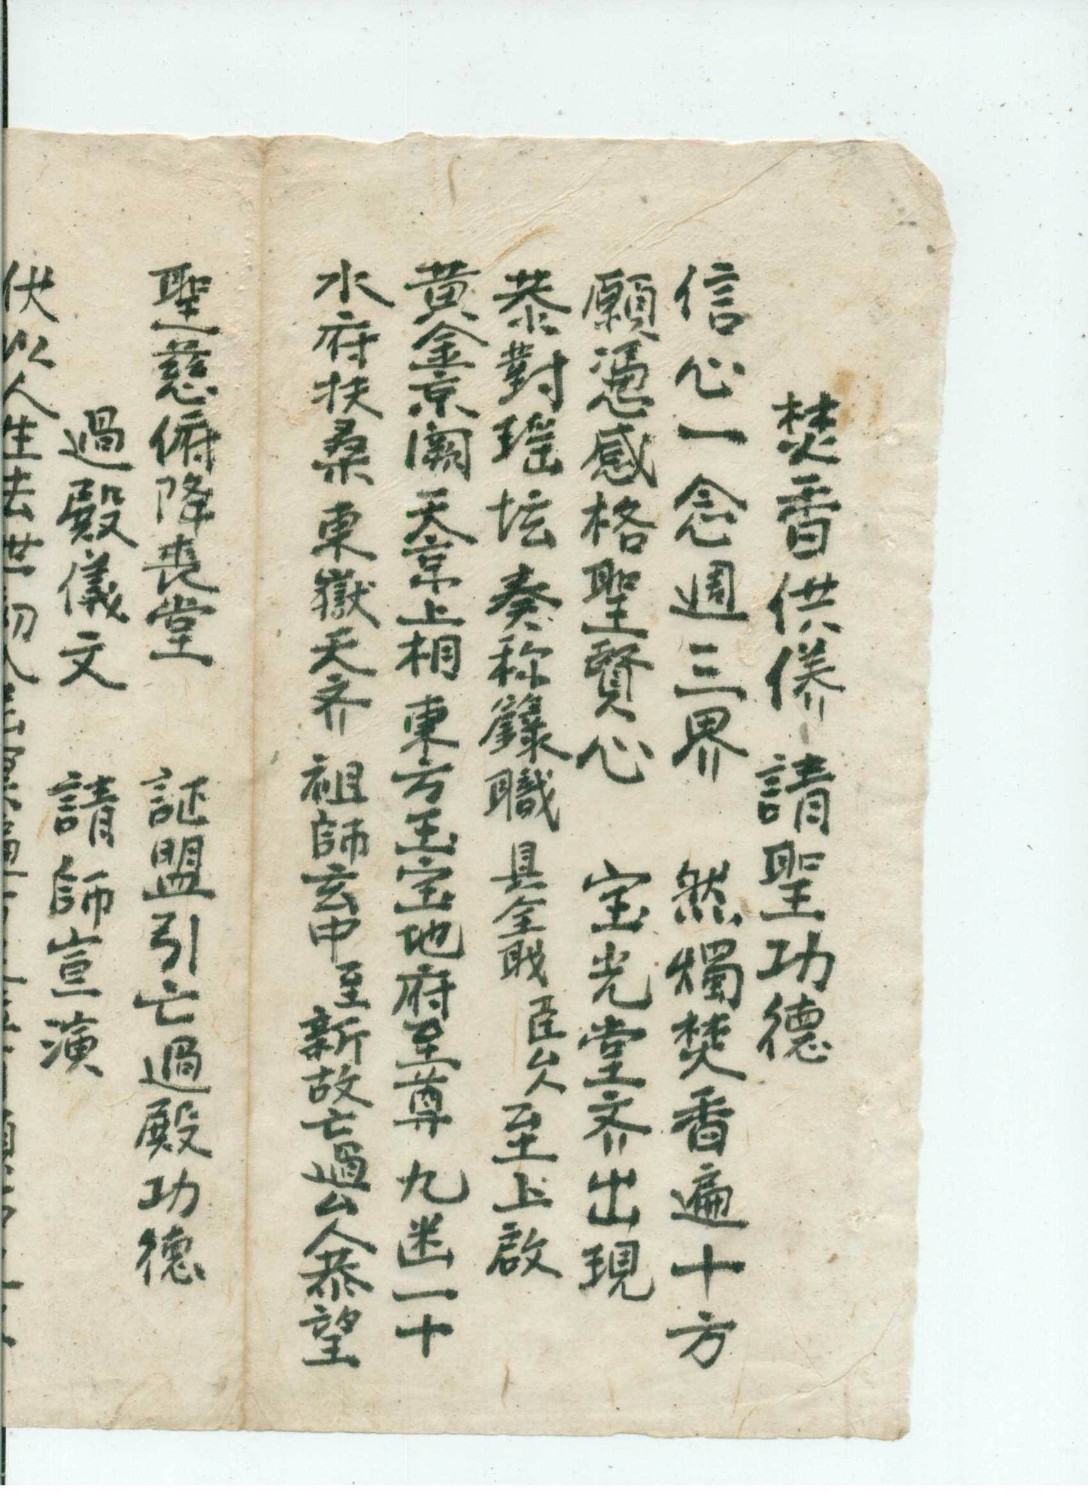 焚香供養 請聖功德
信心一念週三界 然燭焚香遍十方
願憑感格聖賢心 宝光堂齐出現
恭對瑶坛奏称籙職 具全职 臣厶人 至上啟
黃金京阙天京上相東方玉宝地府至尊九幽一十
水府扶桑東嶽天齐祖師玄中至新故亡過厶人恭望
聖慈俯降丧堂 証盟引亡過殿功德
過殿儀文 請師宣演
伏以人生去世